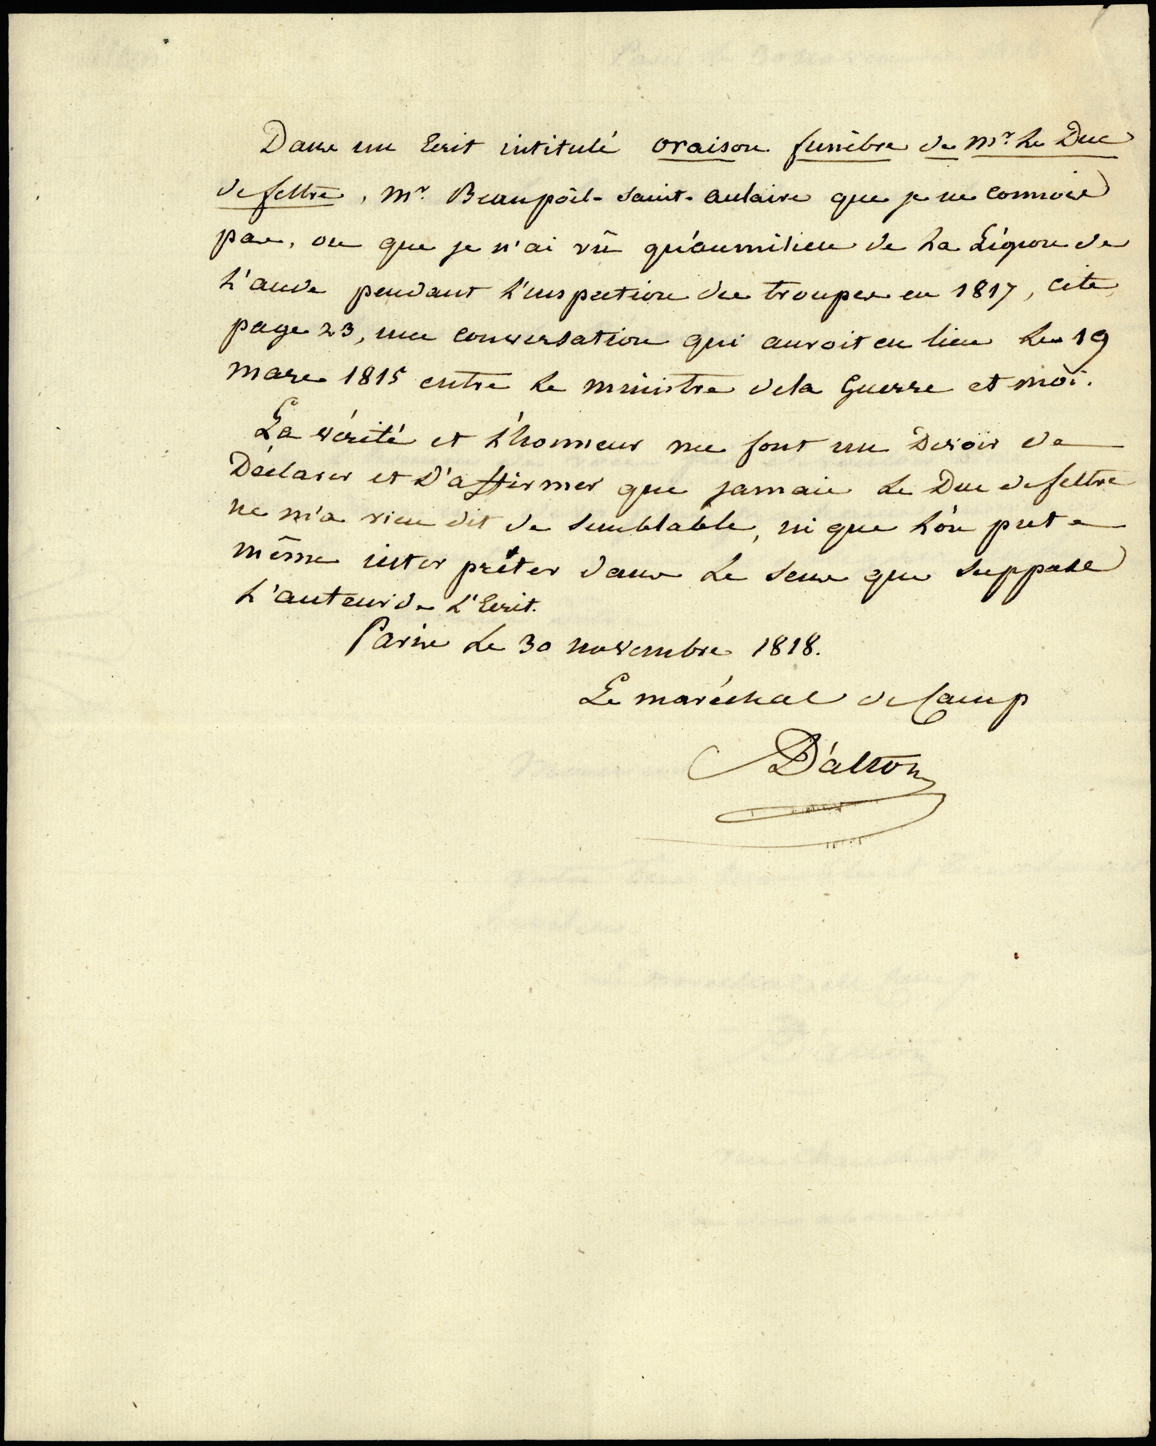 Dans un Ecrit intitulé oraison funèbre de Mr. Le Duc
de feltre, Mr. Beaupoil-Saint-aulaire que je ne connois
pas, ou que je n'ai vû qu'aumilieu de La Légion de
L'aude pendant L'inspection des troupes en 1817, cite
page 23, une conversation qui auroit eu lieu Le 19
mars 1815 entre Le ministre de la Guerre et moi.
La vérité et L'honneur me font un Devoir de
Déclarer et D'affirmer que jamais Le Duc de feltre
ne m'a rien dit de semblable, ni que L'on put
même inter prêter dans Le sens que suppose
L'auteur de L'Ecrit.
Paris Le 30 novembre 1818.
Le maréchal de Camp
D'alton